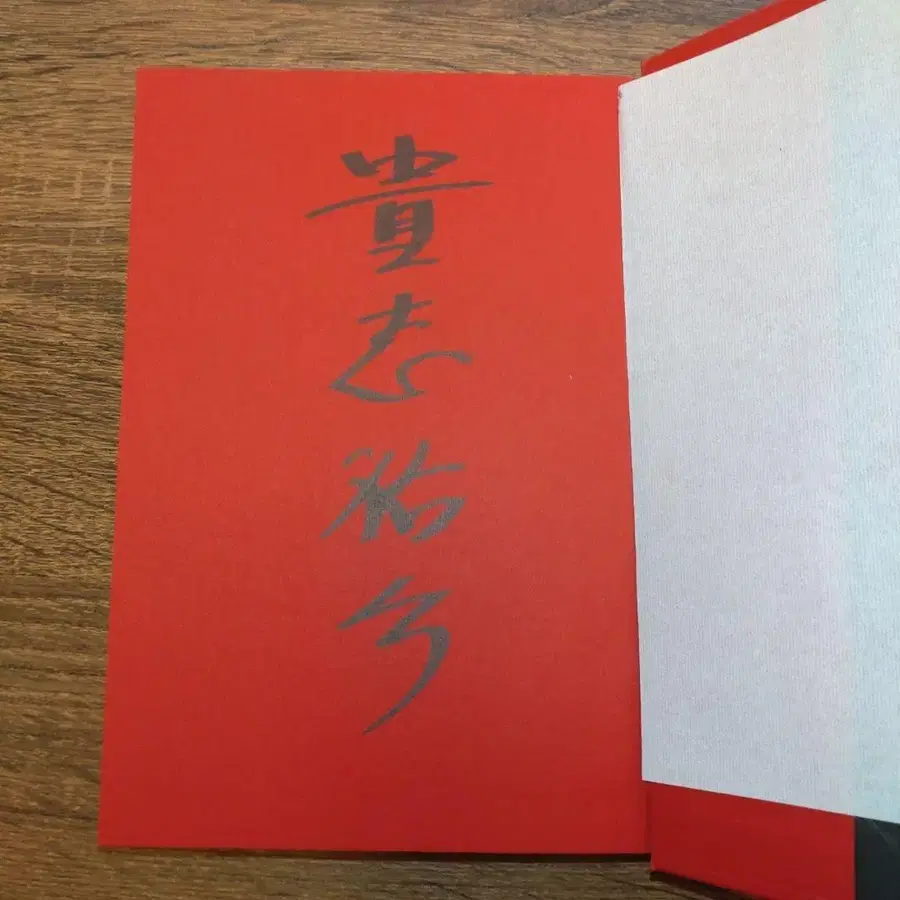 貴志祐介